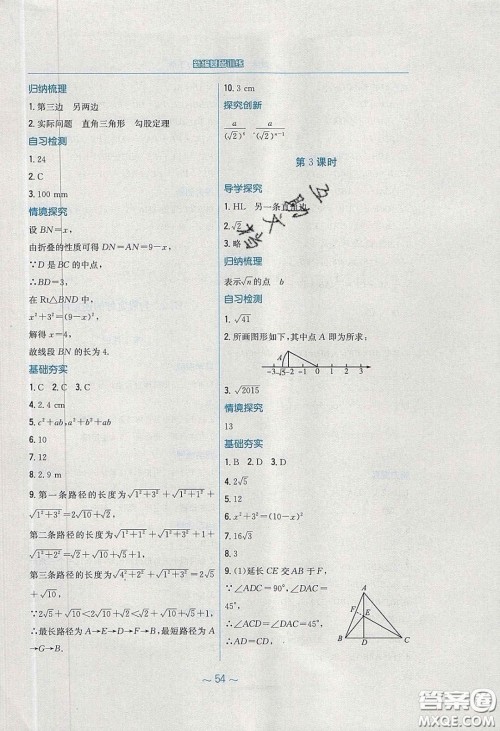 新编基础训练
归纳梳理
1. 第三边　另两边
2. 实际问题　直角三角形　勾股定理
自习检测
1. 24
2. C
3. 100 mm
情境探究
设 BN=x,
由折叠的性质可得 DN=AN=9-x,
∵D 是 BC 的中点,
∴BD=3,
在 Rt△BND 中,
x²+3²=(9-x)²,
解得 x=4.
故线段 BN 的长为 4.
基础夯实
1. C　2. C　3. C
4. 2.4 cm
5. c²+ab, a²+b²+ab
6. 10
7. 12
8. 2.9 m
9. 第一条路径的长度为√(1²+3²)+√(1²+1²)+
√(1²+3²)=2√10+√2,
第二条路径的长度为√(1²+1²)+√(1²+3²)+
1+√2=2√2+√10+1,
第三条路径的长度为√(4²+2²)+√(1²+3²)=
2√5+√10,
∵2√5+√10<2√2+√10+1<2√10+√2,
∴最长路径为 A→E→D→F→B, 最短路径为 A
→G→B.
10. 3 cm
探究创新
a/(√2)ⁿ　a/(√2)ⁿ⁻¹
第 3 课时
导学探究
1. HL　另一条直角边
2. √2
3. 略
归纳梳理
表示√n的点　b
自习检测
1. √41
2. 所画图形如下,其中点 A 即为所求;
A
-3 -√5 -2 -1 0 1 2 3
3. √2015
情境探究
13
基础夯实
1. B　2. D　3. D
4. 2√5
5. 12
6. x²+3²=(10-x)²
7. √13
8. 3
9. (1)延长 CE 交 AB 于 F,
∵∠ADC=90°,∠DAC=
45°,
∴∠ACD=∠DAC=45°,
∴AD=CD;
A
F
E
B D C
～ 54 ～
答案圈
MXQE.COM